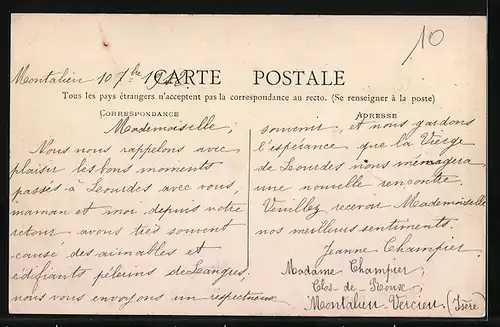 10
Montalieu 10 7bre 1922
CARTE POSTALE
Tous les pays étrangers n'acceptent pas la correspondance au recto. (Se renseigner à la poste)
CORRESPONDANCE
Mademoiselle,
Nous nous rappelons avec
plaisir les bons moments
passés à Lourdes avec vous,
maman et moi depuis notre
retour avons très souvent
causé des aimables et
édifiants pèlerins de Langres,
nous vous envoyons un respectueux
ADRESSE
souvenir, et nous gardons
l'espérance que la Vierge
de Lourdes nous ménagera
une nouvelle rencontre.
Veuillez recevoir Mademoiselle
nos meilleurs sentiments.
Jeanne Champier
Madame Champier,
Clos-de-
Montalieu-Vercieu. (Isère)